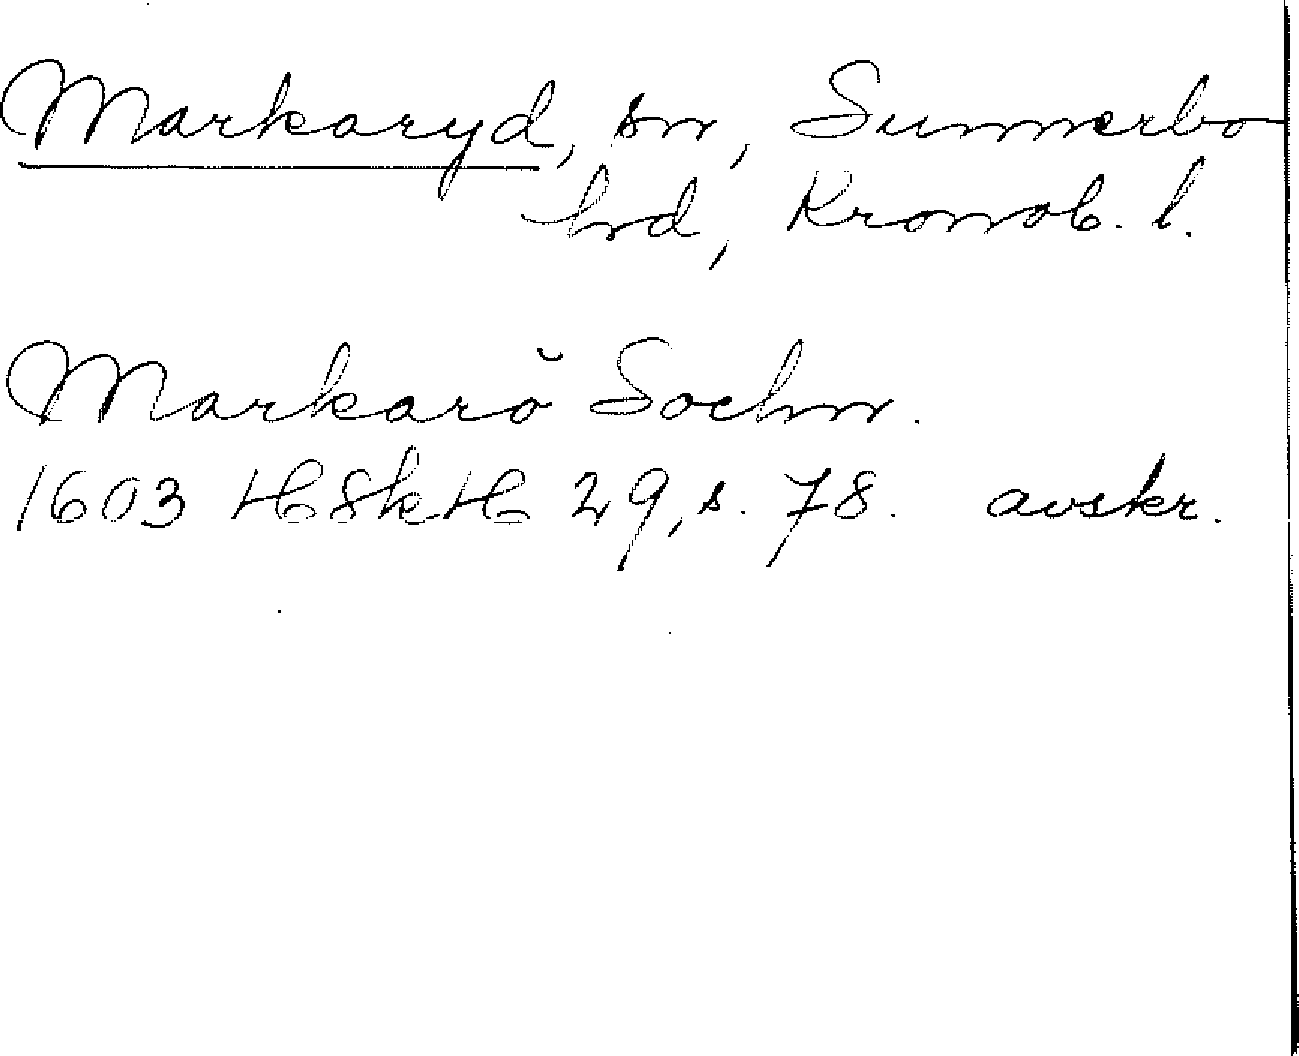 Markaryd, sn, Sunnerbo
hd, Kronob. l.
Markarŏ Sochn.
1603 HSkH 29, s. 78. avskr.